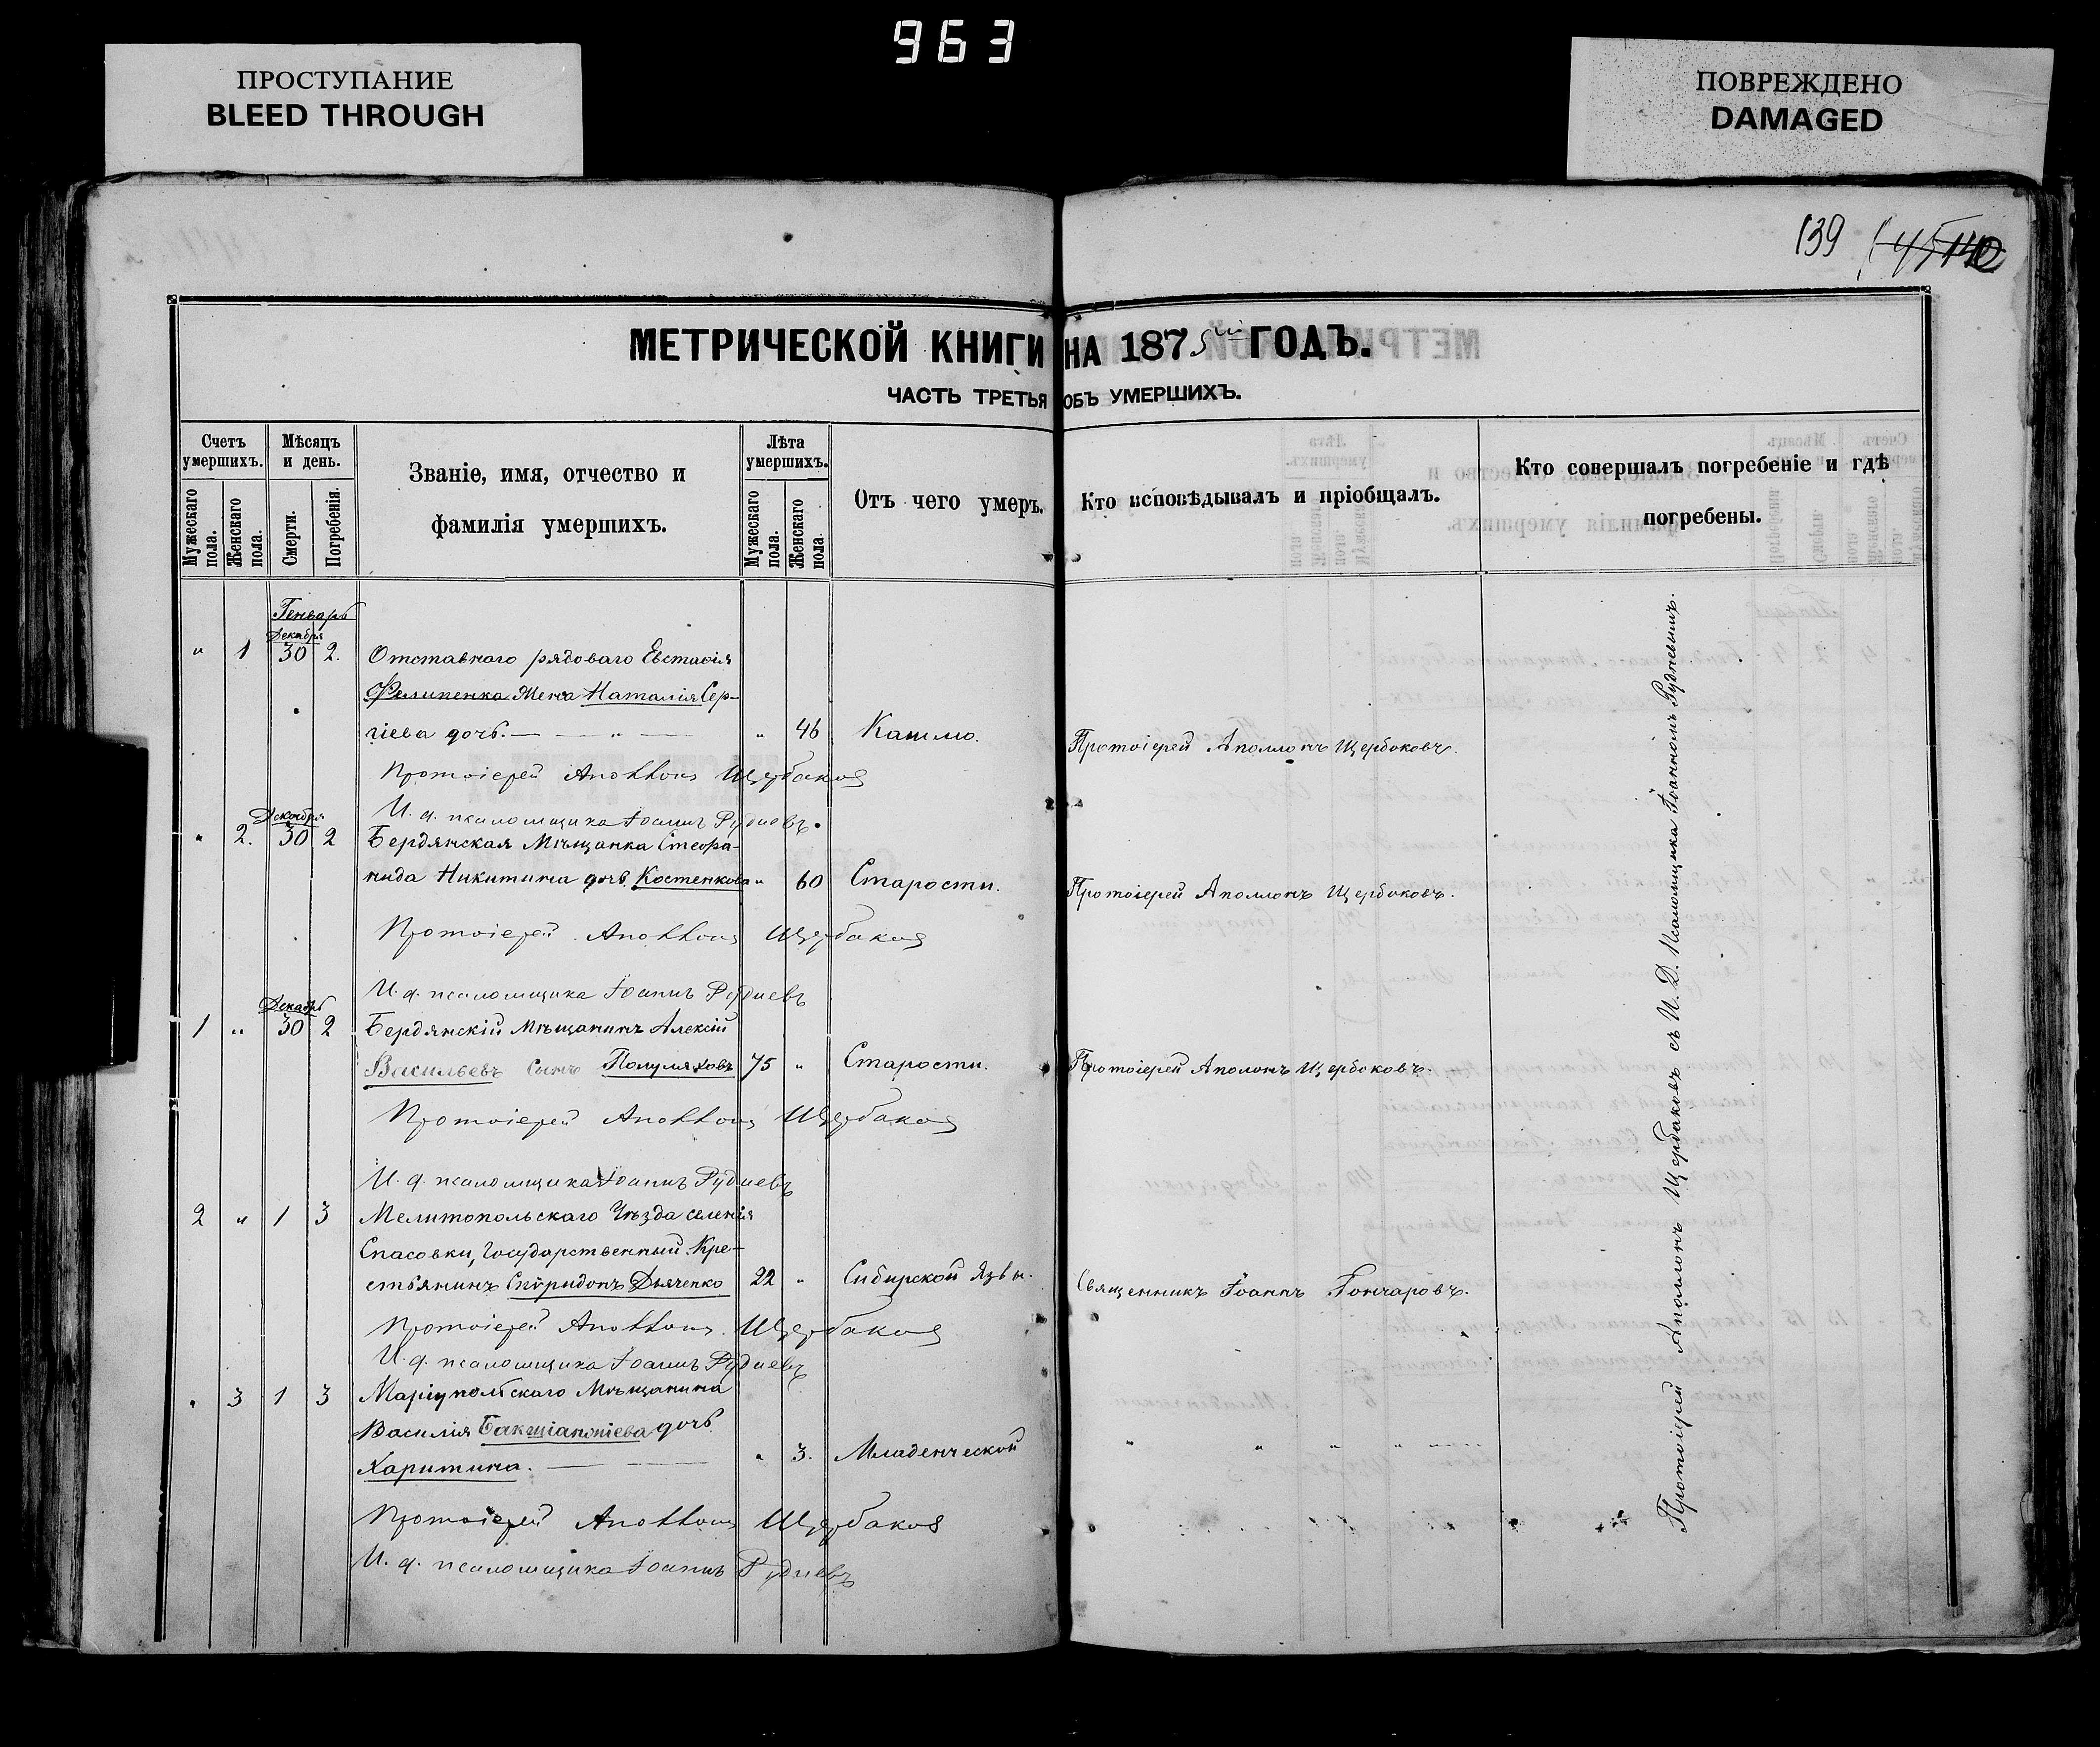 963
ПРОСТУПАНИЕ
BLEED THROUGH
ПОВРЕЖДЕНО
DAMAGED
139
МЕТРИЧЕСКОЙ КНИГИ НА 1875й ГОДЪ.
ЧАСТЬ ТРЕТЬЯ ОБЪ УМЕРШИХЪ.
Счетъ умершихъ.
Мужескаго пола.
Женскаго пола.
Мѣсяцъ и день.
Смерти.
Погребенія.
Званіе, имя, отчество и
фамилія умершихъ.
Лѣта умершихъ.
Мужескаго пола.
Женскаго пола.
Отъ чего умеръ.
Кто исповѣдывалъ и пріобщалъ.
Кто совершалъ погребеніе и гдѣ
погребены.
Генварь
Декабря
" 1 30 2. Отставнаго рядоваго Евстафія
Филипенка жена Наталія Сер-
гіева дочь. — " — " 46 Кашлю. Протоіерей Аполлонъ Щербаковъ.
Протоіерей Аполлонъ Щербаковъ
И. д. псаломщика Іоаннъ Рудневъ.
Декабря
" 2. 30 2 Бердянская Мѣщанка Стефа-
нида Никитина дочь Костенкова " 60 Старости. Протоіерей Аполлонъ Щербаковъ.
Протоіерей Аполлонъ Щербаковъ
И. д. псаломщика Іоаннъ Рудневъ
Декабрь
1 " 30 2 Бердянскій Мѣщанинъ Алексій
Васильевъ Сынъ Полуляховъ 75 " Старости. Протоіерей Аполонъ Щербаковъ.
Протоіерей Аполлонъ Щербаковъ
И. д. псаломщика Іоаннъ Рудневъ
2 " 1 3 Мелитопольскаго Уѣзда селенія
Спасовки, Государственный Кре-
стьянинъ Спиридонъ Дьяченко 22 " Сибирской Язвы. Священникъ Іоаннъ Гончаровъ.
Протоіерей Аполлонъ Щербаковъ
И. д. псаломщика Іоаннъ Рудневъ
" 3 1 3 Маріупольскаго Мѣщанина
Василія дочь
Харитина. — " 3. Младенческой " " " "
Протоіерей Аполлонъ Щербаковъ
И. д. псаломщика Іоаннъ Рудневъ
Протоіерей Аполлонъ Щербаковъ съ И. Д. Псаломщика Іоанномъ Рудневымъ.